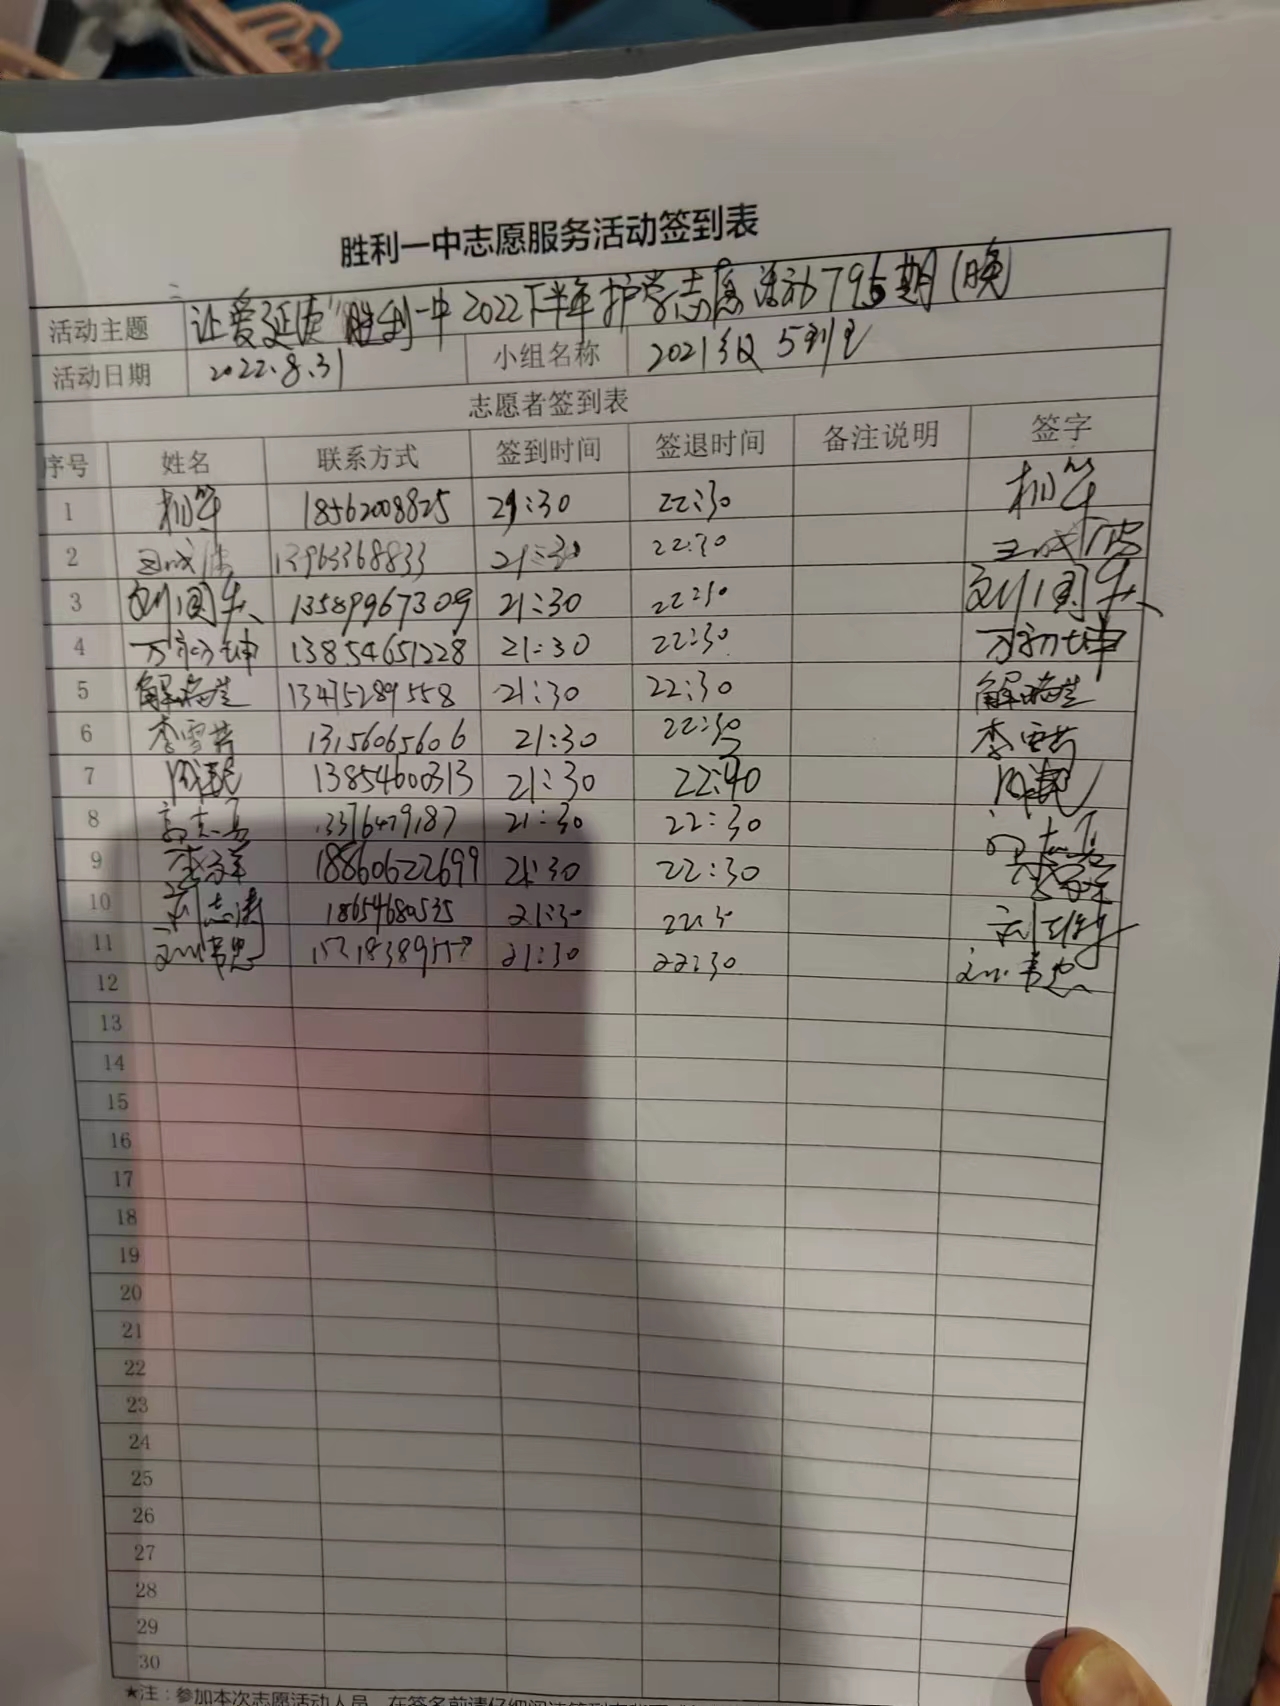 胜利一中志愿服务活动签到表
活动主题 让爱延续"胜利一中2022下半年护学志愿活动795期(晚)
活动日期 2022.8.31 小组名称 2021级5部
志愿者签到表
序号 姓名 联系方式 签到时间 签退时间 备注说明 签字
1 18562008825 21:30 22:30
2 13963368833 21:30 22:30
3 13589967309 21:30 22:30
4 万初坤 13854651228 21:30 22:30 万初坤
5 13475289558 21:30 22:30
6 李雪芹 13156065606 21:30 22:30 李雪芹
7 13854600313 21:30 22:40
8 13376479187 21:30 22:30
9 18860622699 21:30 22:30
10 刘志涛 18654680535 21:30 22:30
11 21:30 22:30
12
13
14
15
16
17
18
19
20
21
22
23
24
25
26
27
28
29
30
★注：参加本次志愿活动人员，在签名前请仔细阅读